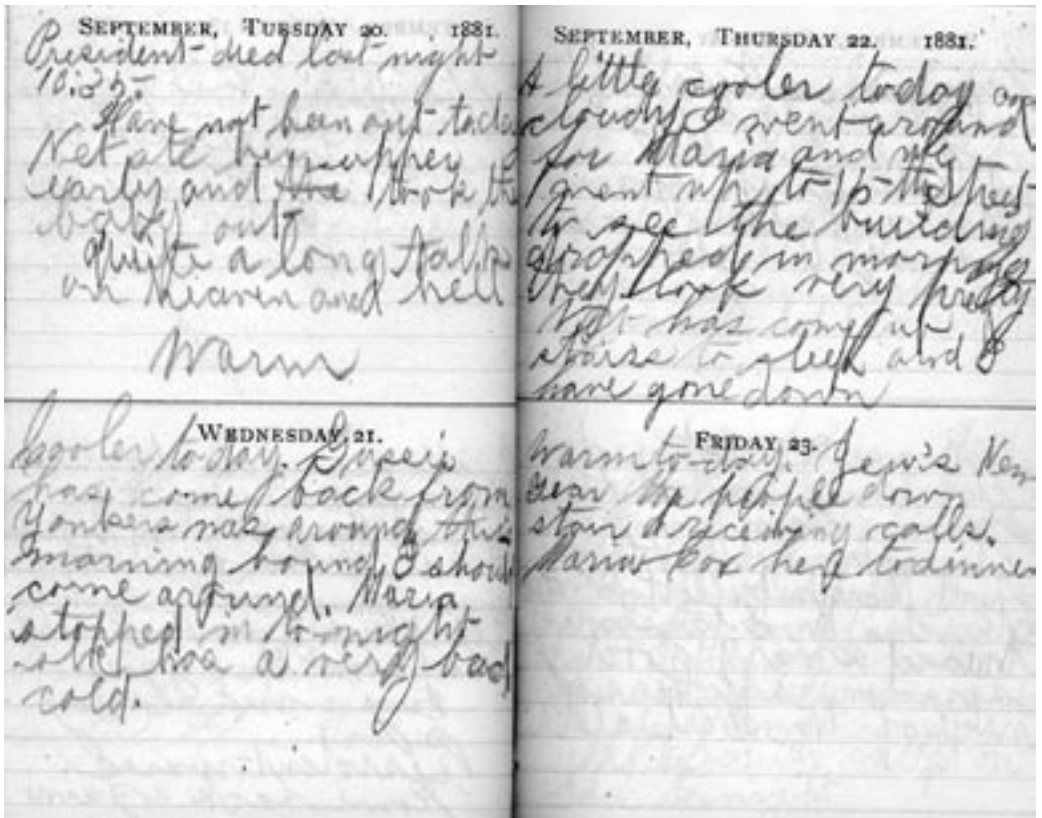 SEPTEMBER, TUESDAY 20. 1881.
President died last night
10:35-
Have not been out today
Net ate her supper
early and took the
baby out
Quite a long talk
on heaven and hell
Warm
WEDNESDAY 21.
Cooler today. Gussie
has come back from
Yonkers was around this
morning bound I should
come around. Maria
stopped in to-night
she has a very bad
cold.
SEPTEMBER, THURSDAY 22. 1881.
A little cooler today and
cloudy I went around
for Maria and we
went up to 15-th Street
to see the building
drapped in morning
they look very pretty
Net has come up
stairs to sleep and I
have gone down
FRIDAY 23.
Warm to-day. Jew's New
Year the people down
stairs receiving calls.
Marion Cox here to dinner